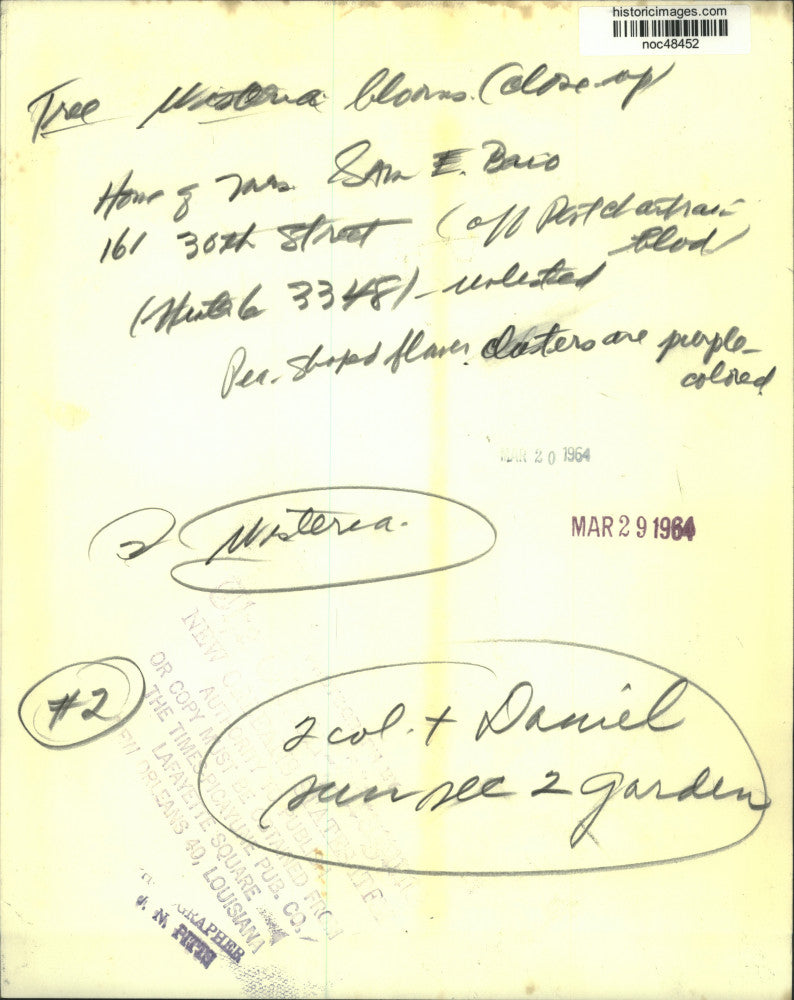 historicimages.com
noc48452
Tree Wisteria blooms (close-up
Home of Mrs. Sam E. Baio
161 30th Street (off Pontchartrain
Blvd
3348) - unlisted
Pea-shaped flower clusters are purple-
colored
MAR 20 1964
2 Wisteria.
MAR 29 1964
#2
2 col. + Daniel
sun sec 2 garden
NEW
OR COPY MUST BE OBTAINED FROM
THE TIMES-PICAYUNE PUB. CO.,
LAFAYETTE SQUARE
NEW ORLEANS 40, LOUISIANA
PHOTOGRAPHER
J. N. PITTS